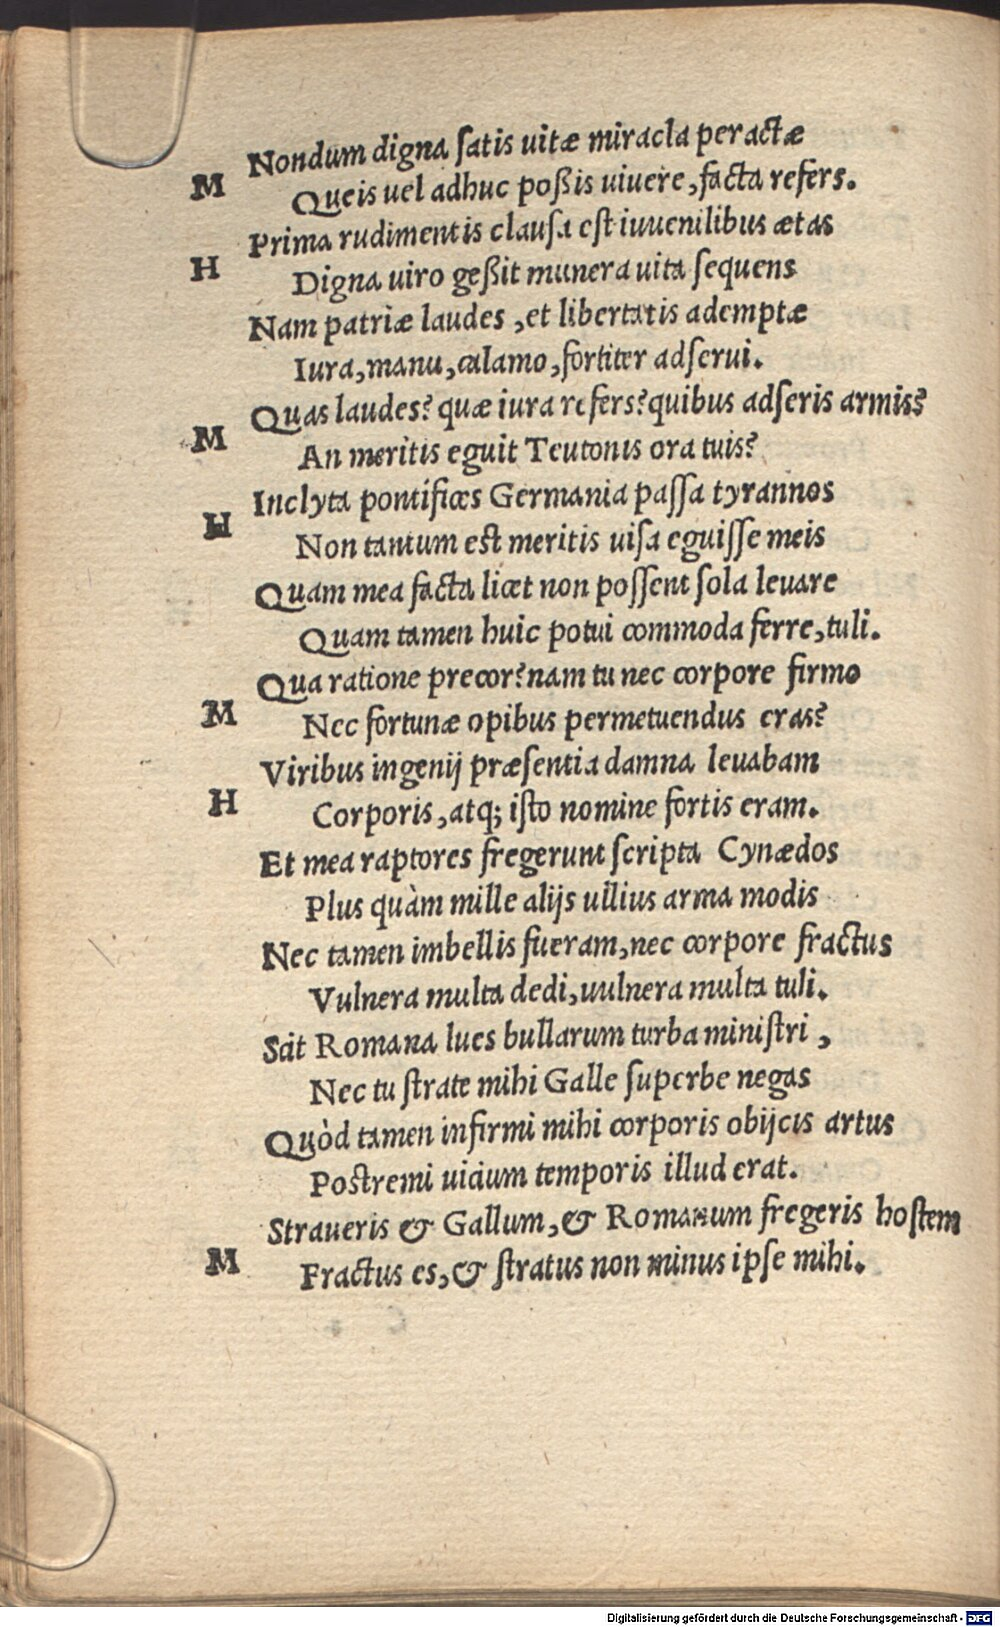 Nondum digna ſatis uitæ miracla peractæ
M Queis uel adhuc poßis uiuere, facta refers.
Prima rudimentis clauſa eſt iuuenilibus ætas
H Digna uiro geßit munera uita ſequens
Nam patriæ laudes, et libertatis ademptæ
Iura, manu, calamo, fortiter adſerui.
Quas laudes? quæ iura refers? quibus adſeris armis?
M An meritis eguit Teutonis ora tuis?
Inclyta pontifices Germania paſſa tyrannos
H Non tantum est meritis uiſa eguiſſe meis
Quam mea facta licet non poſſent ſola leuare
Quam tamen huic potui commoda ferre, tuli.
Qua ratione precor? nam tu nec corpore firmo
M Nec fortunæ opibus permetuendus eras?
Viribus ingenij præſentia damna leuabam
H Corporis, atq; iſto nomine fortis eram.
Et mea raptores fregerunt ſcripta Cynædos
Plus quàm mille alijs ullius arma modis
Nec tamen imbellis fueram, nec corpore fractus
Vulnera multa dedi, uulnera multa tuli.
Scit Romana lues bullarum turba miniſtri,
Nec tu ſtrate mihi Galle ſuperbe negas
Quòd tamen infirmi mihi corporis obijcis artus
Postremi uicium temporis illud erat.
Straueris & Gallum, & Romanum fregeris hoſtem
M Fractus es, & ſtratus non minus ipſe mihi.
Digitalisierung gefördert durch die Deutsche Forschungsgemeinschaft - DFG